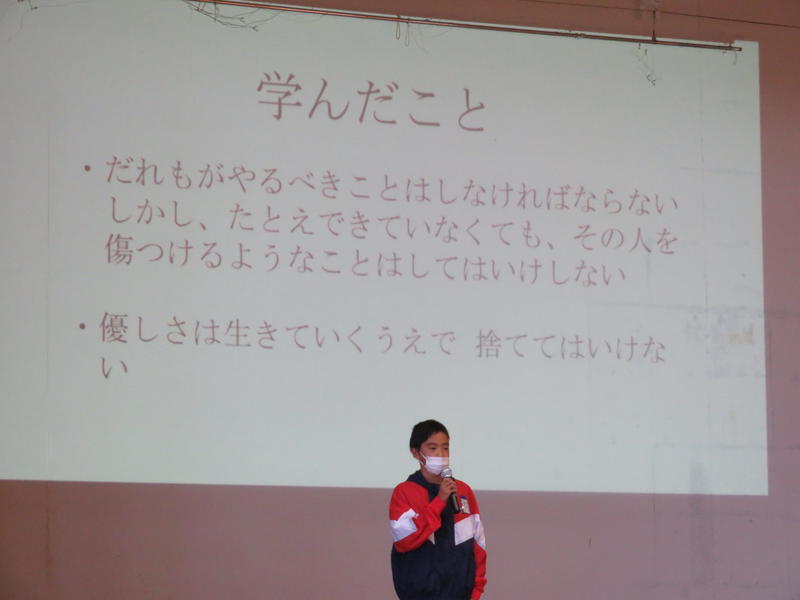 学んだこと
・だれもがやるべきことはしなければならない
しかし、たとえできていなくても、その人を
傷つけるようなことはしてはいけしない
・優しさは生きていくうえで 捨ててはいけな
い